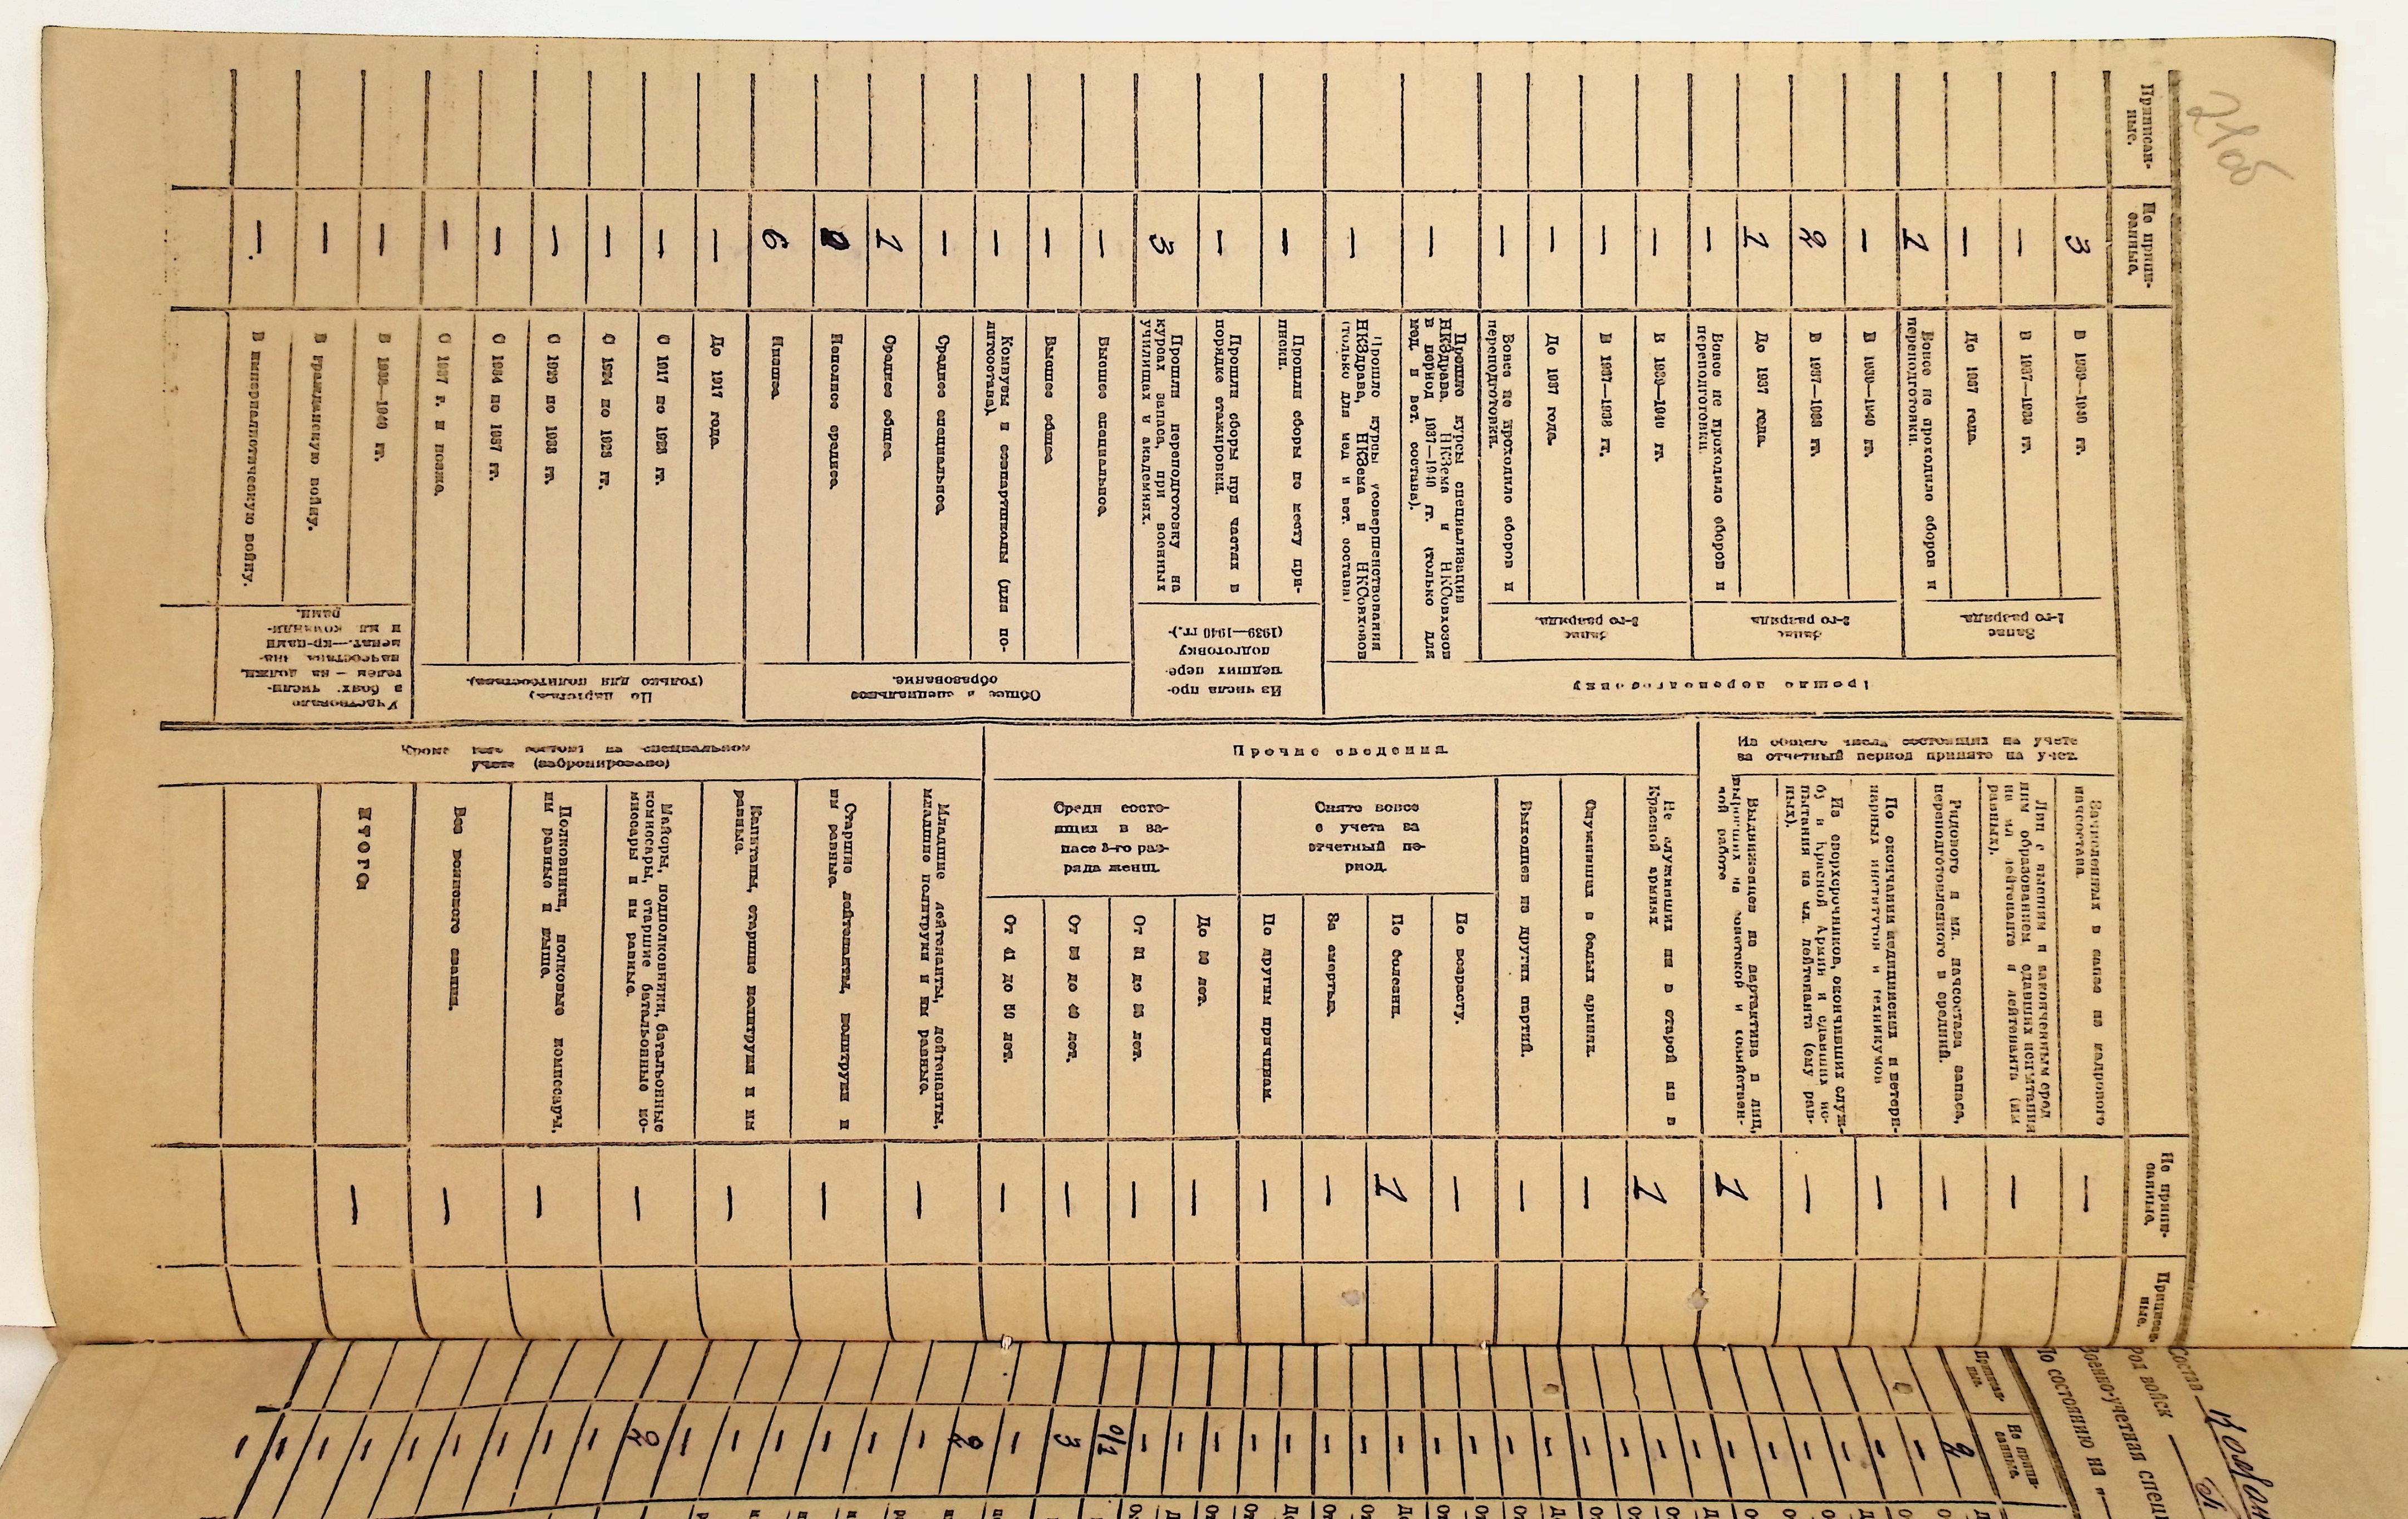 21об
Приписан-
ные.
Не припи-
санные.
Прошло переподготовку
Запас
1-го разряда.
В 1939—1940 гг. 3
В 1937—1938 гг. —
До 1937 года. —
Вовсе не проходило сборов и
переподготовки. 1
Запас
2-го разряда.
В 1939—1940 гг. —
В 1937—1938 гг. 2
До 1937 года. 1
Вовсе не проходило сборов и
переподготовки. —
Запас
3-го разряда.
В 1939—1940 гг. —
В 1937—1938 гг. —
До 1937 года. —
Вовсе не проходило сборов и
переподготовки. —
Прошло курсы специализации
НКЗдрава, НКЗема и НКСовхозов
в период 1937—1940 гг. (только для
мед. и вет. состава). —
Прошло курсы усовершенствования
НКЗдрава, НКЗема и НКСовхозов
(только для мед и вет. состава) —
Из числа про-
шедших пере-
подготовку
(1939—1940 гг.)
Прошли сборы по месту при-
писки. —
Прошли сборы при частях в
порядке стажировки. —
Прошли переподготовку на
курсах запаса, при военных
училищах и академиях. 3
Общее и специальное
образование.
Высшее специальное. —
Высшее общее. —
Комвузы и совпартшколы (для по-
литсостава). —
Среднее специальное. —
Среднее общее. 1
Неполное среднее.
Низшее. 6
По партстажу
(только для политсостава).
До 1917 года. —
С 1917 по 1923 гг. —
С 1924 по 1928 гг. —
С 1929 по 1933 гг. —
С 1934 по 1937 гг. —
С 1937 г. и позже. —
Участвовало
в боях. числи-
телем — на должн.
начсостава зна-
менат.—кр-цами
и мл. команди-
рами.
В 1938—1940 гг. —
В гражданскую войну. —
В империалистическую войну. —
Из общего числа состоящих на учете
за отчетный период принято на учет.
Зачисленных в запас из кадрового
начсостава. —
Лиц с высшим и законченным сред-
ним образованием, сдавших испытания
на мл лейтенанта и лейтенанта (им
равных). —
Рядового и мл. начсостава запаса,
переподготовленного в средний. —
По окончании медицинских и ветери-
нарных институтов и техникумов —
Из сверхсрочников, окончивших служ-
бу в Красной Армии и сдавших ис-
пытания на мл. лейтенанта (ему рав-
ных). —
Выдвиженцев из партактива и лиц,
выросших на советской и хозяйствен-
ной работе 1
Прочие сведения
Не служивших ни в старой ни в
Красной армиях 1
Служивших в белых армиях. —
Выходцев из других партий. —
Снято вовсе
с учета за
отчетный пе-
риод.
По возрасту. —
По болезни. 1
За смертью. —
По другим причинам. —
Среди состо-
ящих в за-
пасе 3-го раз-
ряда женщ.
До 30 лет. —
От 31 до 35 лет. —
От 35 до 40 лет. —
От 41 до 50 лет. —
Кроме того состоит на специальном
учете (забронировано)
Младшие лейтенанты, лейтенанты,
младшие политруки и им равные. —
Старшие лейтенанты, политруки и
им равные. —
Капитаны, старшие политруки и им
равные. —
Майоры, подполковники, батальонные
комиссары, старшие батальонные ко-
миссары и им равные. —
Полковники, полковые комиссары,
им равные и выше. —
Без воинского звания. —
ИТОГО —
Не припи-
санные.
Приписан-
ные.
Состав
Род войск
Военно-учетная спец
По состоянию на «
Приписан-
ные.
Не припи-
санные.
2
0/1
3
2
2